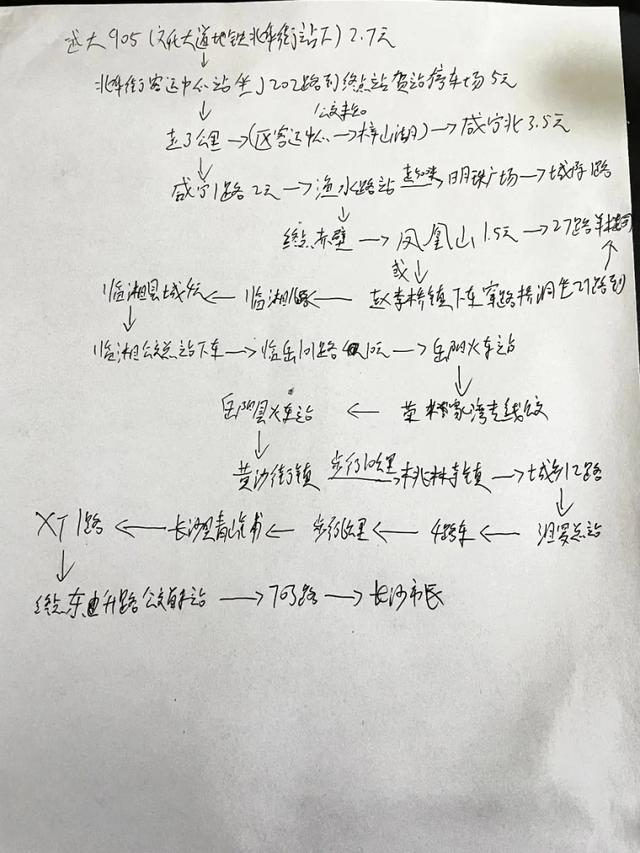 远大905(文化大道地铁北华街站下)2.7元
↓
北华街客运中心站坐J202路到终点站贺站停车场5元
↓ 公交未知
走3公里→(区客运中心→梓山湖)→咸宁北3.5元
↓
咸宁1路2元→渔水路站→明珠广场→城际1路
↓
终点赤壁→凤凰山1.5元→27路羊楼司
或↓ ↑
临湘县城←临湘16路←赵李桥镇下车穿路桥洞坐27路到
↓
临湘公交总站下车→临岳101路10元→岳阳火车站
↓
岳阳县火车站←荣家湾专线公交
↓
黄沙街镇 步行10公里→桃林寺镇→城乡12路
↓
XT1路←长沙青山铺←步行公里←4路车←汨罗总站
↓
终点东升路公交首末站→703路→长沙市民